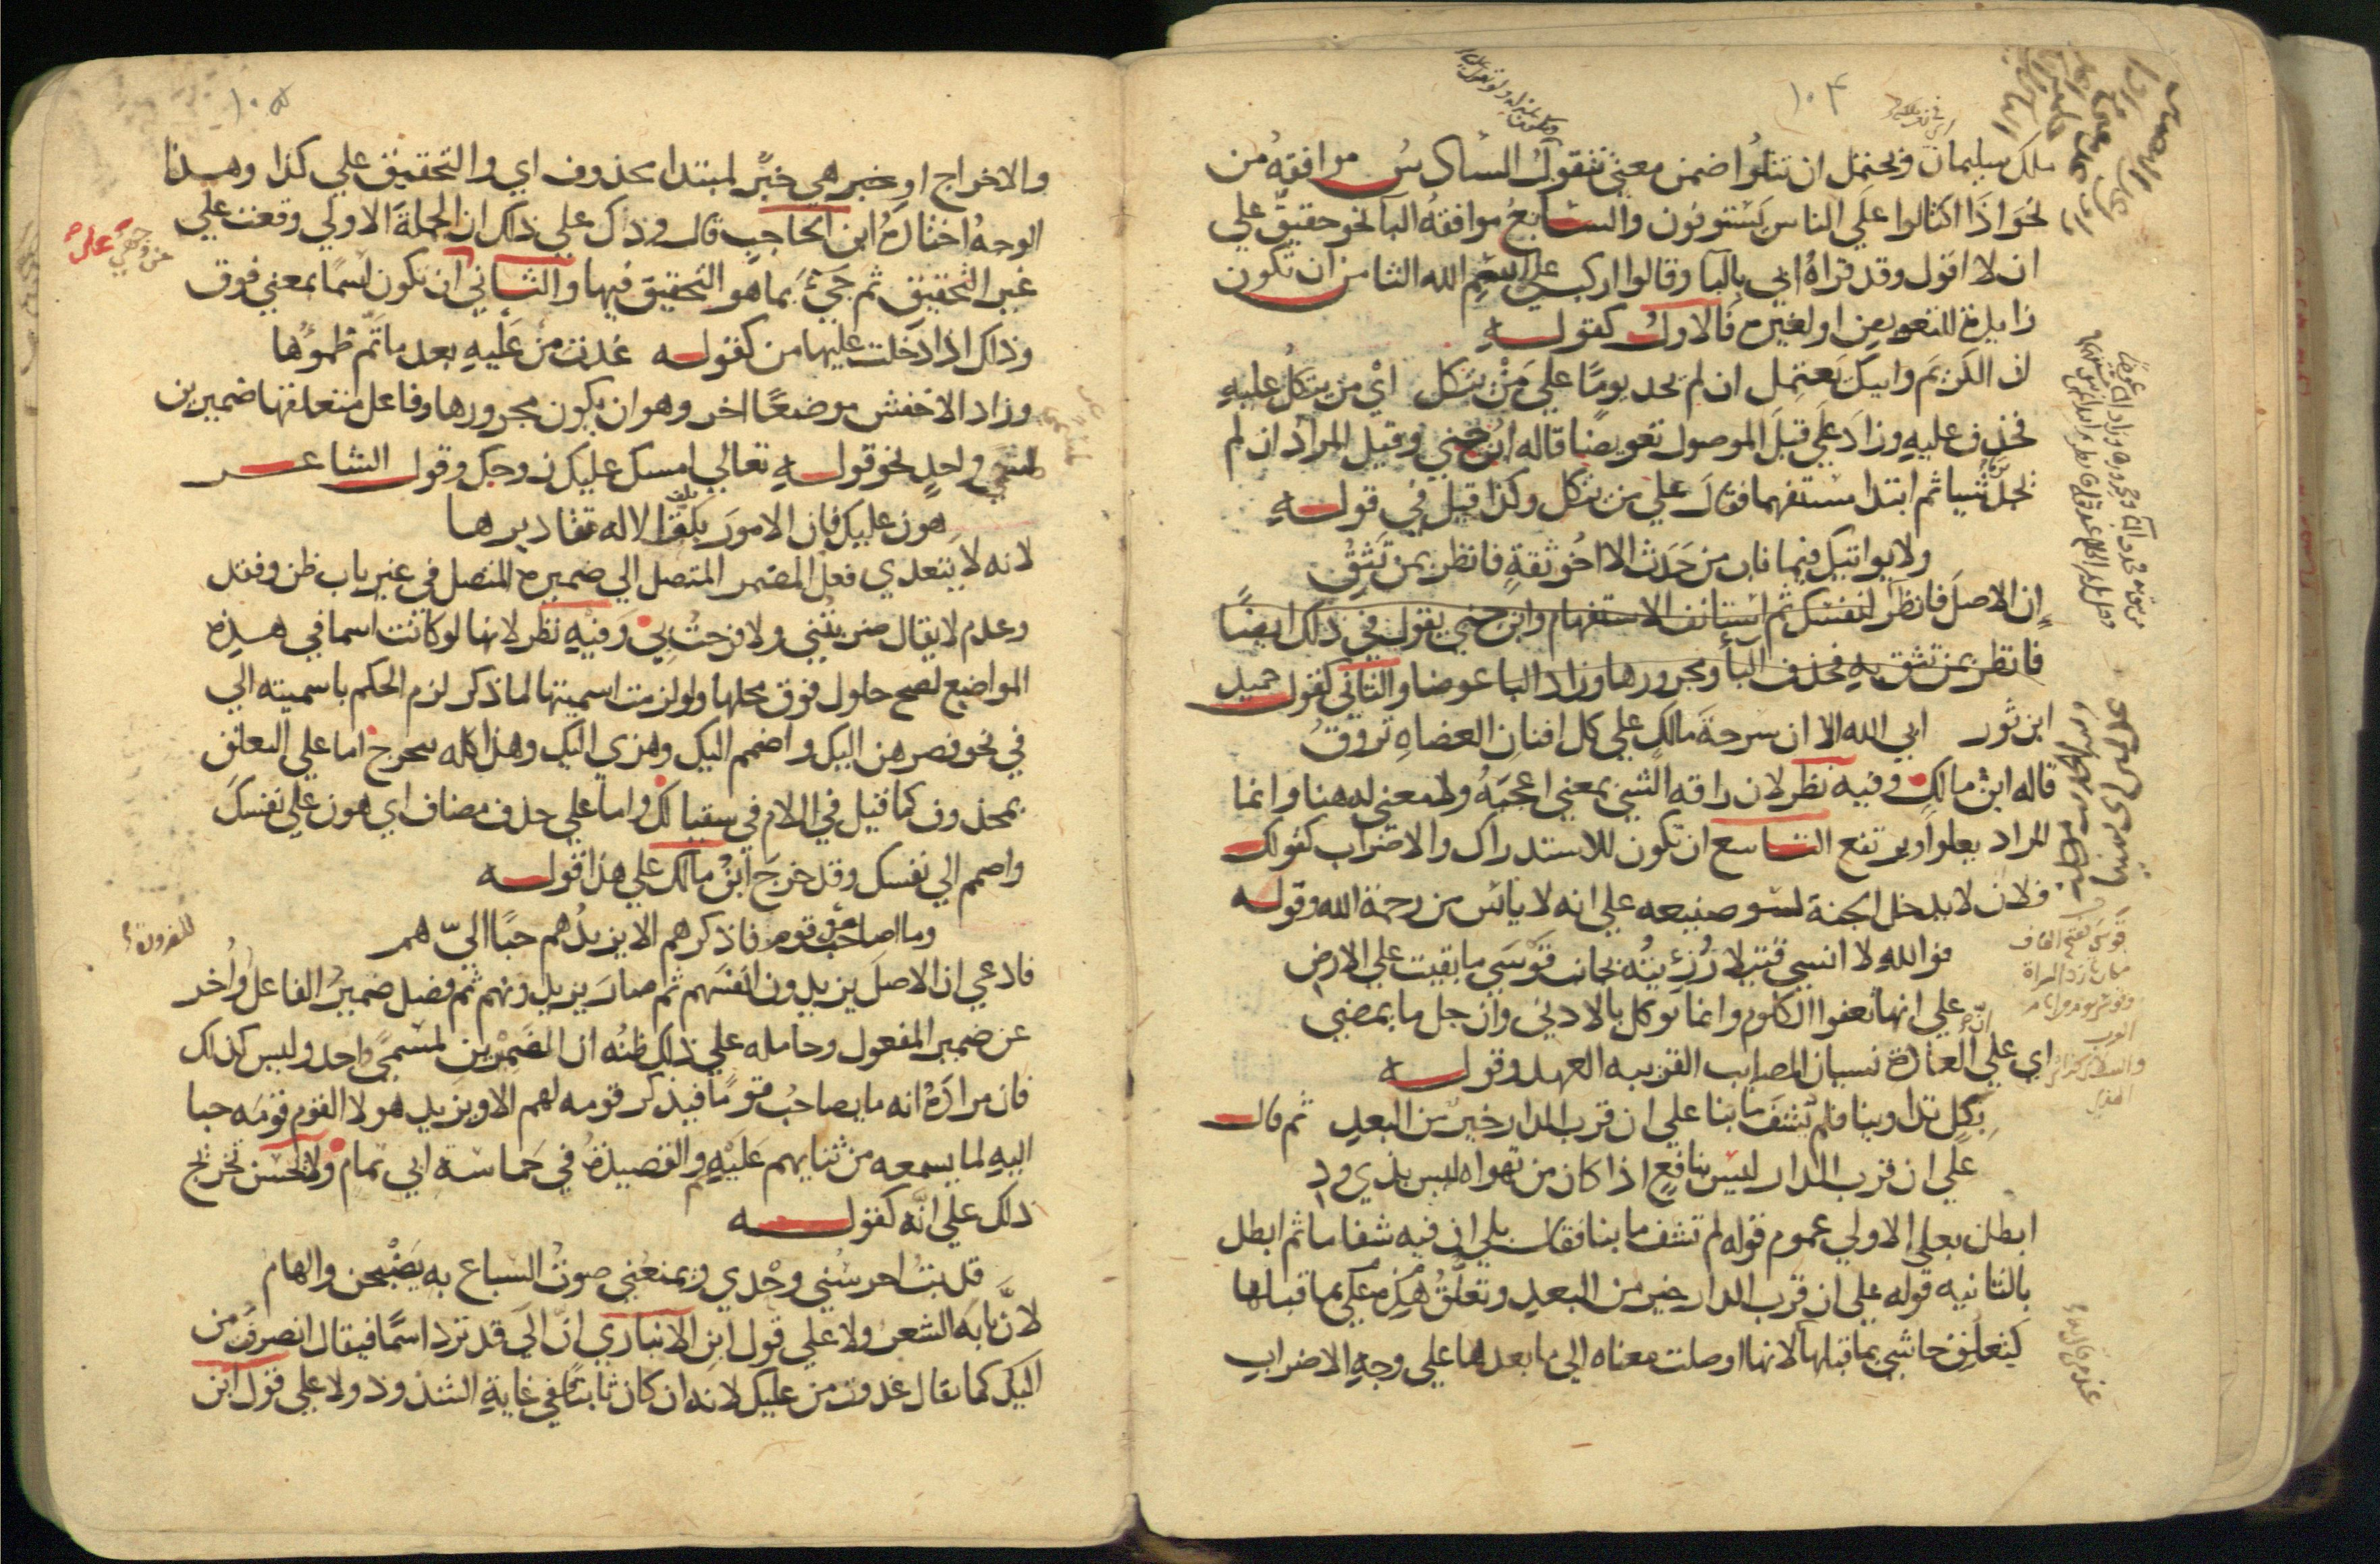 ١٠٤
ملك سليمان ويحتمل ان تتلوا ضمن معني تتقول السادس موافقه من
نحو اذا اكتالوا علي الناس يستوفون والسابع موافقه البا نحو حقيق علي
ان لا اقول وقد قراه ابي بالبا وقالوا اركب علي اسم الله الثامن ان تكون
زايدة للتعويض او لغيره فالاول كقوله
ان الكريم وابيك يعتمل ان لم يجد يوما علي من يتكل اي من يتكل عليه
فحذف عليه وزاد علي قبل الموصول تعويضا قاله ابن جني وقيل المراد ان لم
يجد شيا ثم ابتدا مستفهما فقال علي من يتكل وكذا قيل في قوله
ولا يواتيك فيما ناب من حدث الا اخو ثقة فانظر بمن تثق
ان الاصل فانظر لنفسك ثم استانف الاستفهام وابن جني يقول في ذلك ايضا
فانظر من تثق به فحذف البا ومجرورها وزاد البا عوضا والثاني كقول حميد
ابن ثور ابي الله الا ان سرحة مالك علي كل افنان العضاه تروق
قاله ابن مالك وفيه نظر لان راقه الشي بمعني اعجبه ولا معني له هنا وانما
المراد يعلوا ويرتفع التاسع ان تكون للاستدراك والاضراب كقولك
فلان لا يدخل الجنة لسو صنيعه علي انه لا يائس من رحمة الله وقوله
فو الله لا انسي قتيلا رزئته بجانب قوسي ما بقيت علي الارض
علي انها تعفوا الكلوم وانما نوكل بالادني وان جل ما يمضي
اي علي العادة نسيان المصايب القريبه العهد وقوله
بكل تداوينا فلم يشف ما بنا علي ان قرب الدار خير من البعد ثم قال
علي ان قرب الدار ليس بنافع اذا كان من تهواه ليس بذي ود
ابطل بعلي الاولي عموم قوله لم تشف ما بنا فقال بلي ان فيه شفا ما ثم ابطل
بالثانيه قوله علي ان قرب الدار خير من البعد وتعلق هذه علي بما قبلها
كتعلق حاشي بما قبلها لانها اوصلت معناه الي ما بعدها علي وجه الاضراب
قوسي بفتح القاف
١٠٥
والاخراج او خبر هي خبر لمبتدا محذوف اي والتحقيق علي كذا وهذا
الوجه اختاره ابن الحاجب قال وذلك علي ذلك ان الجملة الاولي وقعت علي
غير التحقيق ثم جيء بما هو التحقيق فيها والثاني ان تكون اسما بمعني فوق
وذلك اذا دخلت عليها من كقوله غدت من عليه بعد ما تم ظموها
وزاد الاخفش موضعا اخر وهو ان يكون مجرورها وفاعل متعلقها ضميرين
لمسمي واحد نحو قوله تعالي امسك عليك زوجك وقول الشاعر
هون عليك فان الامور بكف الاله مقاديرها
لانه لا يتعدي فعل المضمر المتصل الي ضميره المتصل في غير باب ظن وفقد
وعدم لا يقال ضربتني ولا فرحت بي وفيه نظر لانها لو كانت اسما في هذه
المواضع لصح حلول فوق محلها ولو لزمت اسميتها لما ذكر لزم الحكم باسميته الي
في نحو فصرهن اليك واضمم اليك وهزي اليك وهذا كله يتخرج اما علي التعلق
بمحذوف كما قيل في اللام في سقيا لك واما علي حذف مضاف اي هون علي نفسك
واضمم الي نفسك وقد خرج ابن مالك علي هذا قوله
وما اصاحب من قوم فاذكرهم الا يزيدهم حبا الي هم
فادعي ان الاصل يزيدون انفسهم ثم صار يزيدونهم ثم فصل ضمير الفاعل واخر
عن ضمير المفعول وحامله علي ذلك ظنه ان الضميرين لمسمي واحد وليس كذلك
فان مراده انه ما يصاحب قوما فيذكر قومه لهم الا ويزيد هولا القوم قومه حبا
اليه لما يسمعه من ثنايهم عليهم والقصيدة في حماسة ابي تمام ولا يحسن تخريج
ذلك علي انه كقوله
قد بت احرسني وحدي ويمنعني صوت السباع به يضبحن والهام
لان بابه الشعر ولا علي قول ابن الانباري ان الي قد ترد اسما فيقال انصرفت من
اليك كما يقال غدوت من عليك لانه ان كان ثابتا ففي غاية الشذوذ ولا علي قول ابن
للضرورة